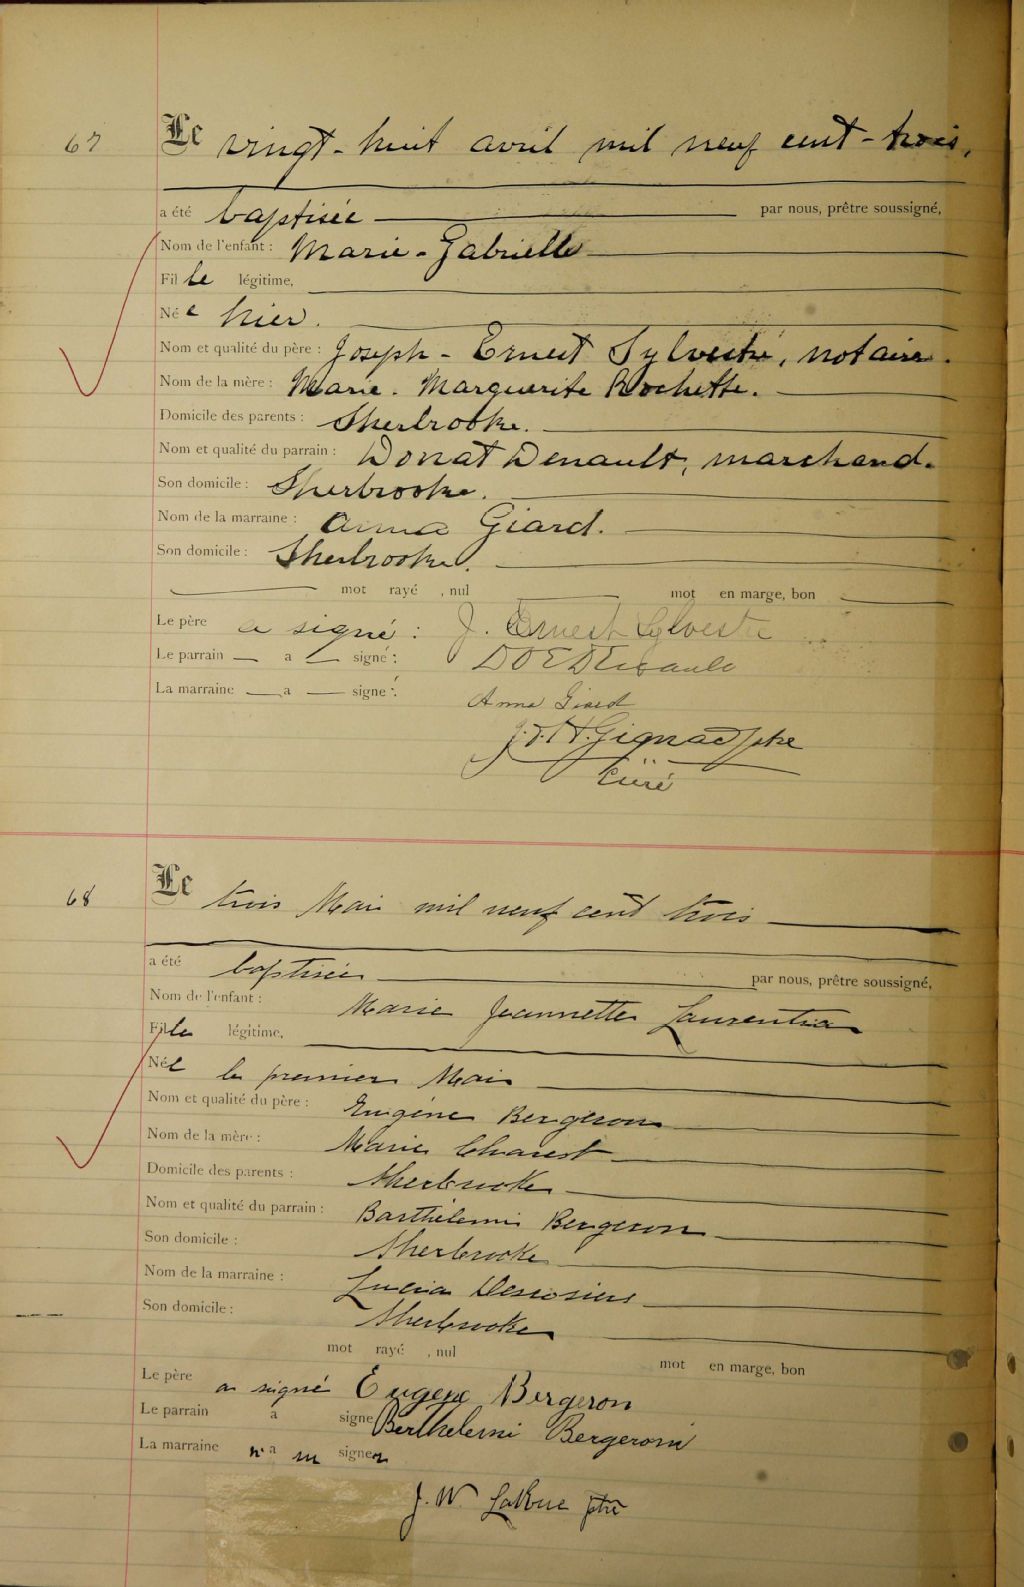 67
Le vingt-huit avril mil neuf cent-trois,
a été baptisée par nous, prêtre soussigné,
Nom de l'enfant : Marie-Gabrielle
Fille légitime,
Née hier.
Nom et qualité du père : Joseph-Ernest Sylvestre, notaire.
Nom de la mère : Marie-Marguerite Rochette.
Domicile des parents : Sherbrooke.
Nom et qualité du parrain : Donat Denault, marchand.
Son domicile : Sherbrooke.
Nom de la marraine : Anna Giard.
Son domicile : Sherbrooke.
mot rayé , nul mot en marge, bon
Le père a signé : J. Ernest Sylvestre
Le parrain — a — signé : DOE Denault
La marraine — a — signé : Anna Giard
Gignac ptre
Curé
68
Le trois Mai mil neuf cent trois
a été baptisée par nous, prêtre soussigné,
Nom de l'enfant : Marie Jeannette Laurentia
Fille légitime,
Née le premier Mai
Nom et qualité du père : Eugène Bergeron
Nom de la mère : Marie Charest
Domicile des parents : Sherbrooke
Nom et qualité du parrain : Barthélemi Bergeron
Son domicile : Sherbrooke
Nom de la marraine : Lucia Desrosiers
Son domicile : Sherbrooke
mot rayé , nul mot en marge, bon
Le père a signé Eugene Bergeron
Le parrain a signe Berthelemi Bergeron
La marraine n'a su signer
J. W. LaRue ptre